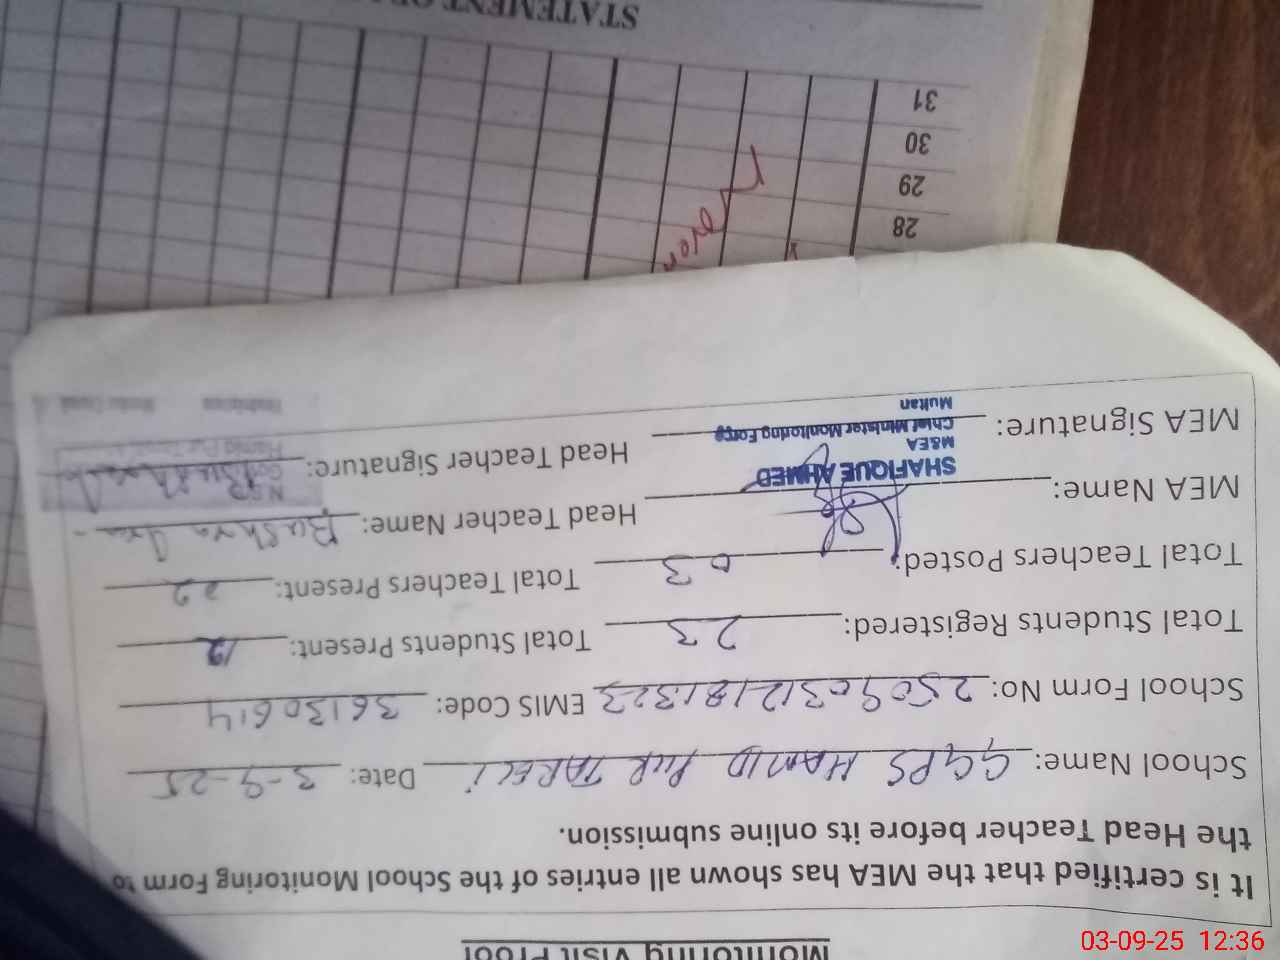 Monitoring Visit Proof
It is certified that the MEA has shown all entries of the School Monitoring Form to
the Head Teacher before its online submission.
School Name: GGPS HAMID PUR TARELI Date: 3-9-25
School Form No: 250903121813 23 EMIS Code: 36130614
Total Students Registered: 23 Total Students Present: 12
Total Teachers Posted: 03 Total Teachers Present: 02
MEA Name: Head Teacher Name: Bushra
SHAFIQUE AHMED
M&EA
MEA Signature: Chief Minister Monitoring Force Head Teacher Signature:
Multan
28
29
30
31
STATEMENT OF
03-09-25 12:36